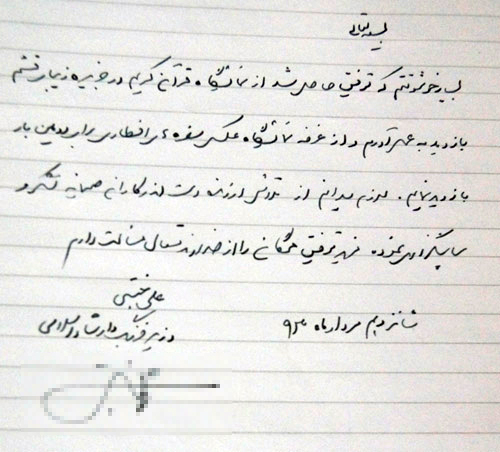 بسمه تعالی
بسیار خوشوقتم که توفیق حاصل شد از نمایشگاه قرآن کریم در جزیره زیبای قشم
بازدید به عمل آورم و از غرفه نمایشگاه عکس سفره های افطاری برای دومین بار
بازدید نمایم. لازم میدانم از تلاش ارزنده دست اندرکاران صمیمانه تشکر و
سپاسگزاری نموده مزید توفیق همگان را از خداوند متعال مسئلت دارم
علی جنتی
شانزدهم مرداد ماه ۹۳
وزیر فرهنگ و ارشاد اسلامی